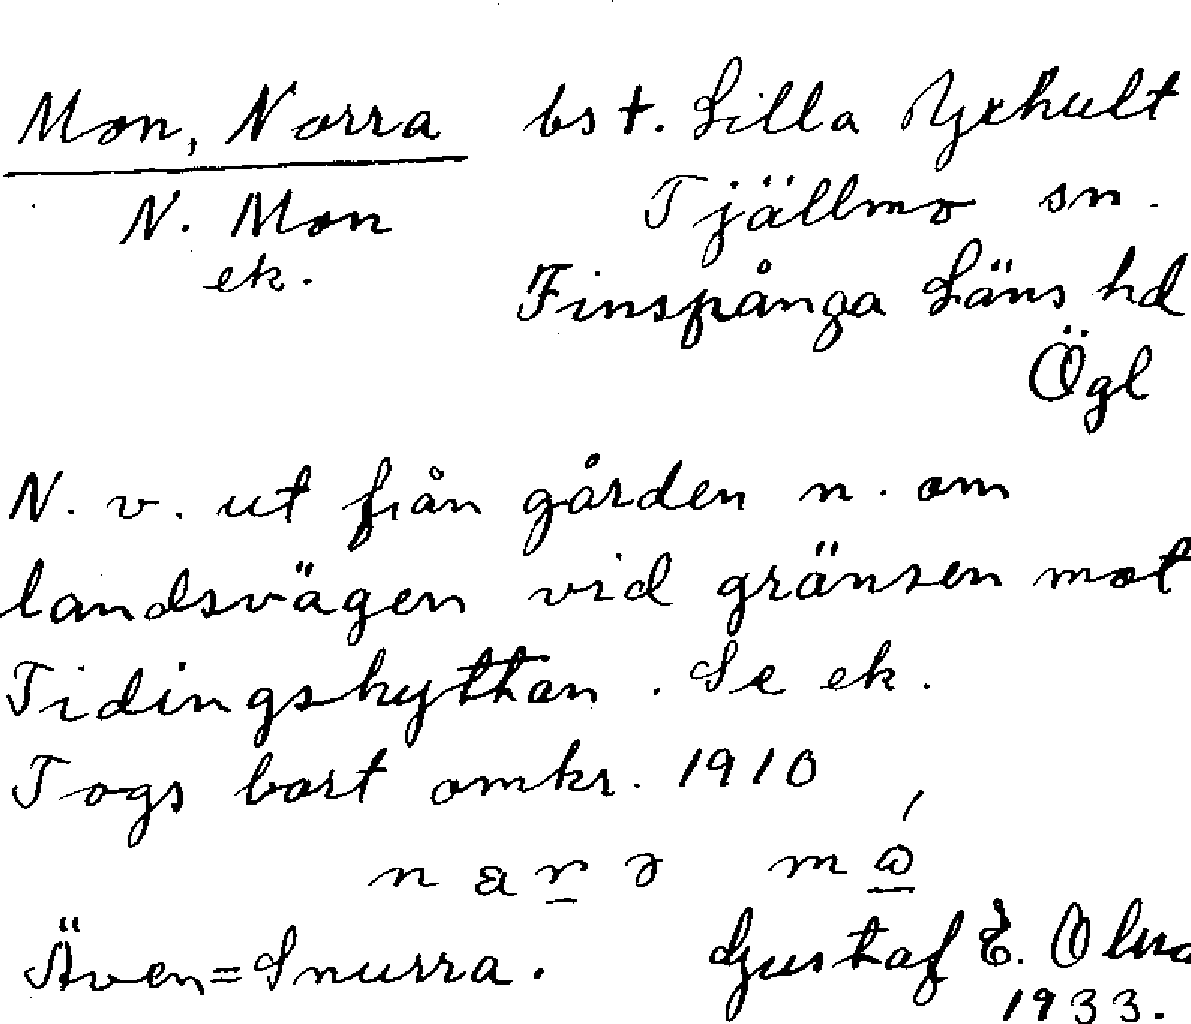 Mon, Norra bst. Lilla Yxhult
N. Mon Tjällmo sn.
ek. Finspånga Läns hd
Ögl
N. v. ut från gården n. om
landsvägen vid gränsen mot
Tidingshyttan. Se ek.
Togs bort omkr. 1910
Även=Snurra. Gustaf E.
1933.